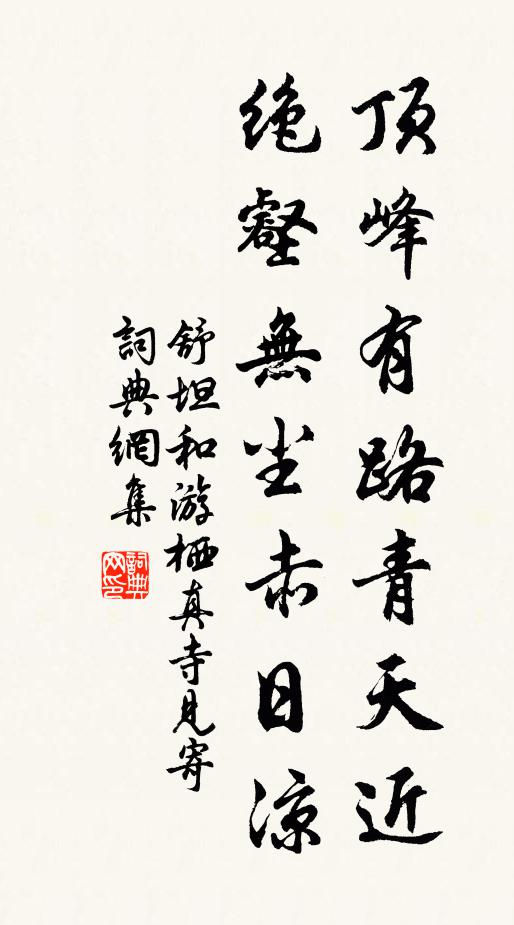 顶峰有路青天近
绝壑無尘赤日凉
舒坦和游栖真寺見寄
詞典網集
詞典網印